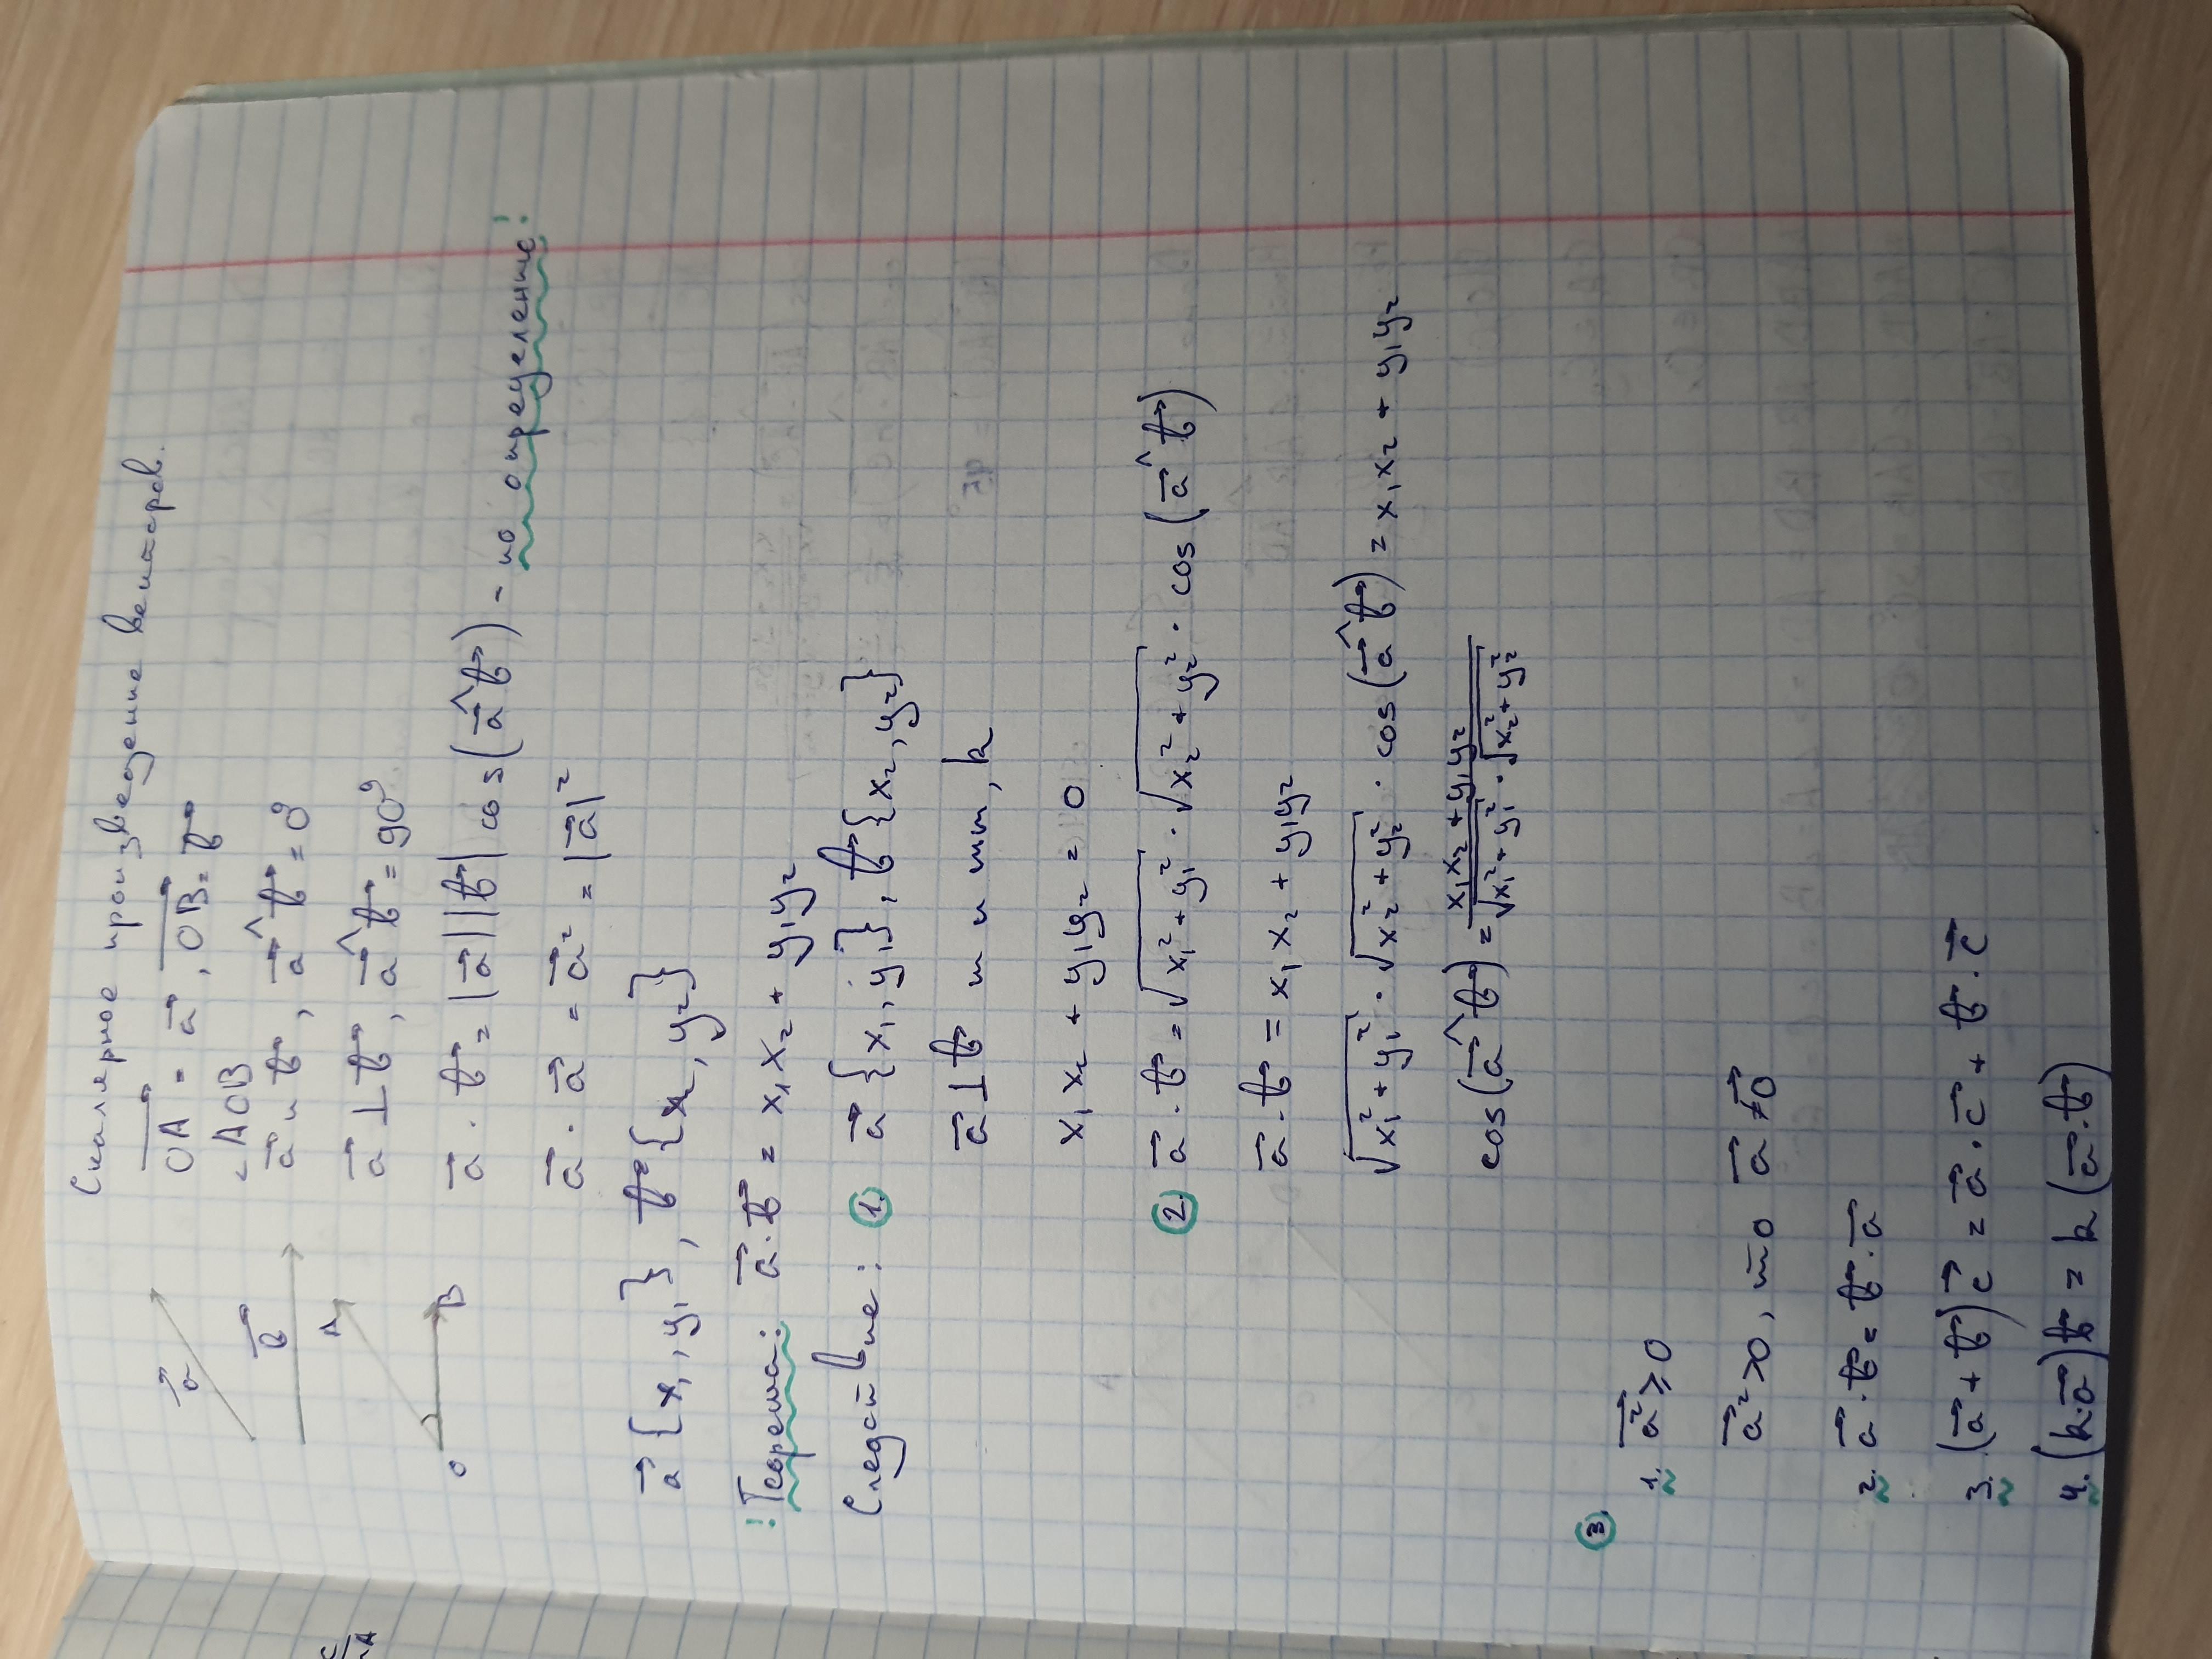 Скалярное произведение векторов.
a⃗
b⃗
A
O
B
OA⃗ = a⃗, OB⃗ = b⃗
∠AOB
a⃗ и b⃗, a⃗^b⃗ = 0°
a⃗ ⊥ b⃗, a⃗^b⃗ = 90°
a⃗ · b⃗ = |a⃗||b⃗| cos (a⃗^b⃗) - по определение!
a⃗ · a⃗ = a⃗² = |a⃗|²
a⃗ {x₁, y₁}, b⃗ {x₂, y₂}
! Теорема: a⃗ · b⃗ = x₁x₂ + y₁y₂
Следствие: 1. a⃗ {x₁, y₁}, b⃗ {x₂, y₂}
a⃗ ⊥ b⃗ т и тт, k
x₁x₂ + y₁y₂ = 0
2. a⃗ · b⃗ = √(x₁² + y₁²) · √(x₂² + y₂²) · cos (a⃗^b⃗)
a⃗ · b⃗ = x₁x₂ + y₁y₂
√(x₁² + y₁²) · √(x₂² + y₂²) · cos (a⃗^b⃗) = x₁x₂ + y₁y₂
cos (a⃗^b⃗) = (x₁x₂ + y₁y₂) / (√(x₁² + y₁²) · √(x₂² + y₂²))
3.
1. a⃗² ≥ 0
a⃗² > 0, то a⃗ ≠ 0⃗
2. a⃗ · b⃗ = b⃗ · a⃗
3. (a⃗ + b⃗) c⃗ = a⃗ · c⃗ + b⃗ · c⃗
4. (k · a⃗) b⃗ = k (a⃗ · b⃗)